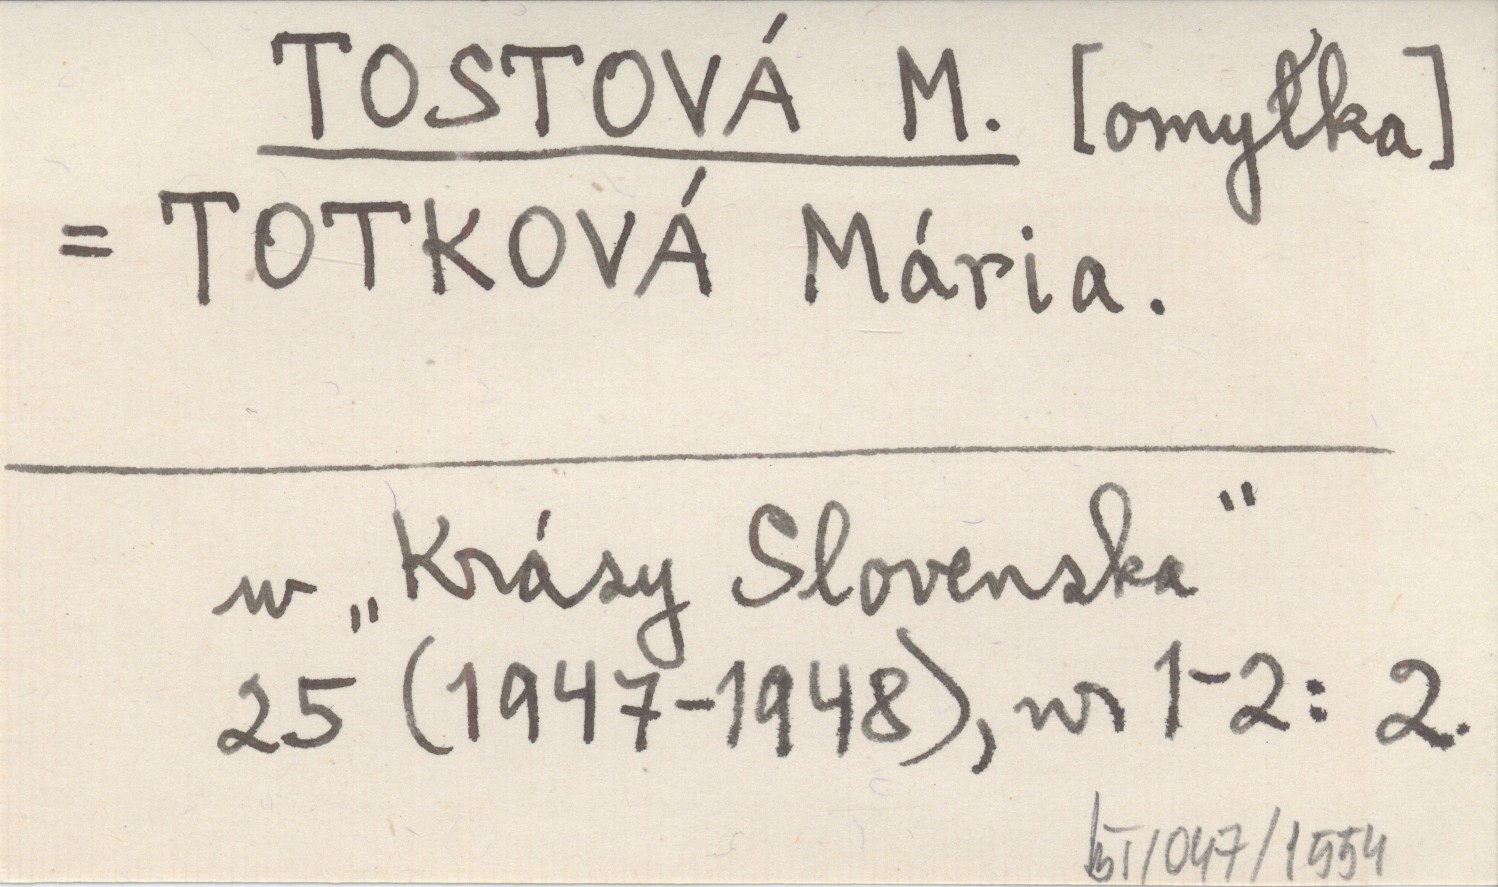 TOSTOVÁ M. [omyłka]
= TOTKOVÁ Mária.
w „Krásy Slovenska"
25 (1947-1948), nr 1-2: 2.
/047/1554